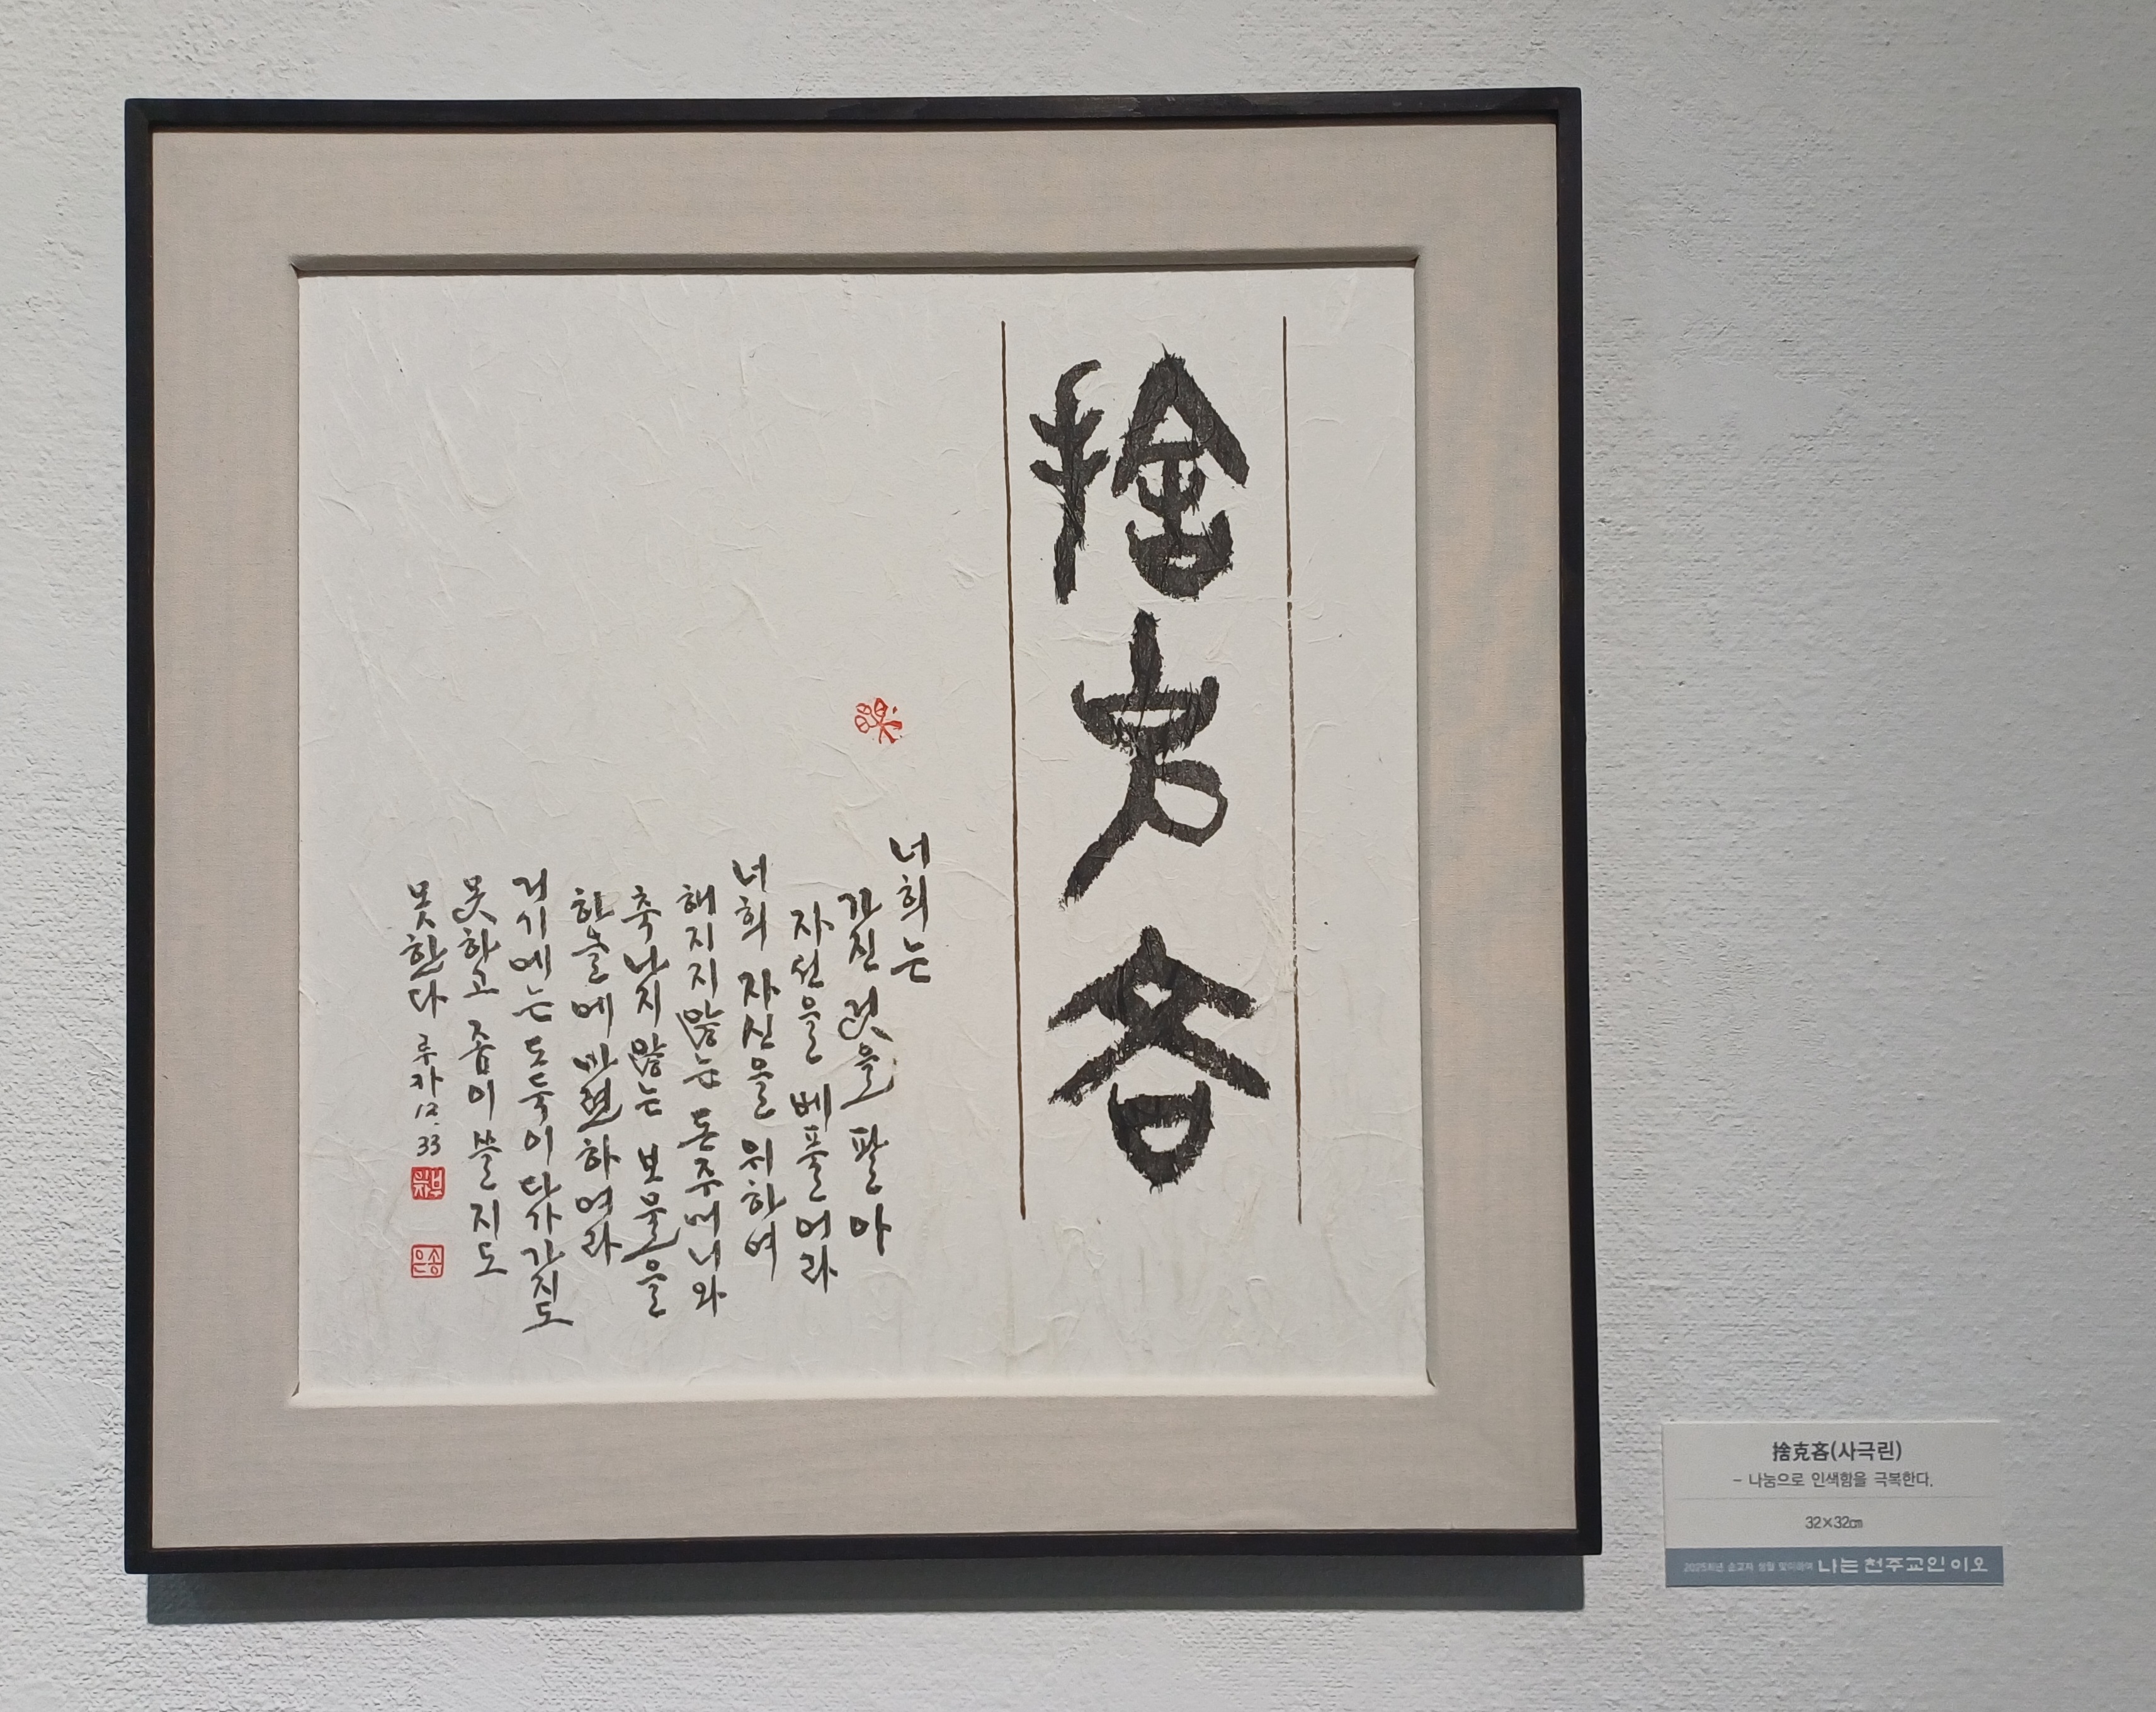 捨克吝
너희는
가진 것을 팔아
자선을 베풀어라
너희 자신을 위하여
해지지 않는 돈주머니와
축나지 않는 보물을
하늘에 마련하여라
거기에는 도둑이 다가가지도
못하고 좀이 쓸지도
못한다 루카 12. 33
송은
捨克吝(사극린)
- 나눔으로 인색함을 극복한다.
32×32㎝
2025희년 순교자 성월 맞이하여 나는 천주교인이오